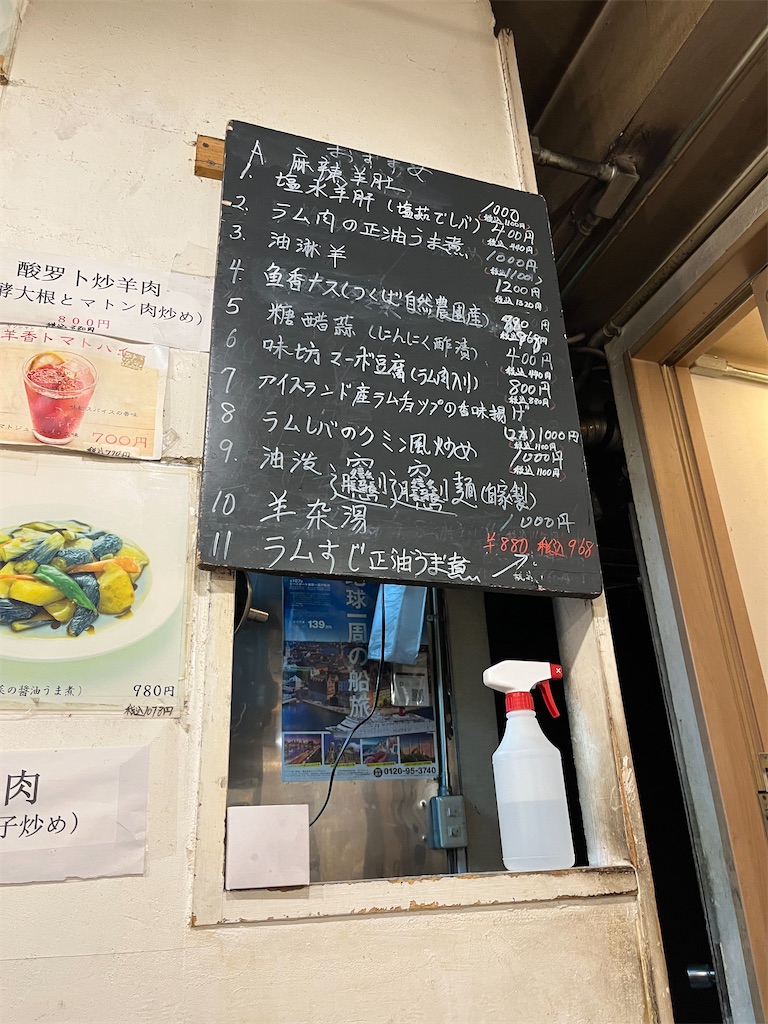 おすすめ
A 麻辣羊肚 1000 税込1100円
1. 塩水羊肝(塩茹でレバ) 400円 税込440円
2. ラム肉の正油うま煮 1000円 (税込1100)
3. 油淋羊 1200円 税込1320円
4 魚香ナス(つくば自然農園産) 880円 税込968円
5 糖醋蒜 (にんにく酢漬) 400円 税込440
6 味坊マーボ豆腐(ラム肉入り) 800円 税込880円
7 アイスランド産ラムチョップの香味揚げ (2本)1000円 税込1100円
8 ラムレバのクミン風炒め 1000円 税込1100
9. 油泼𰻞𰻞麺(自家製) 1000円
10 羊杂湯 ¥880 税込968
11 ラムすじ正油うま煮
酸罗卜炒羊肉
酵大根とマトン肉炒め)
800円
税込880円
羊香トマトハイ
700円
税込770円
菜の醤油うま煮) 980円
税込1078円
肉
子炒め)
球一周の船旅
139
0120-95-3740